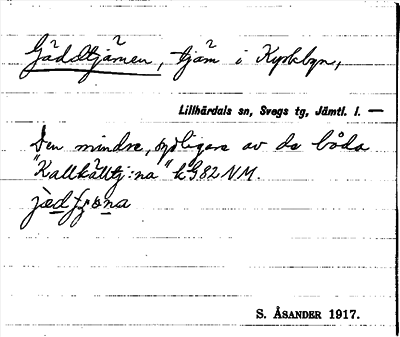 Gäddtjärnen, tjärn i Kyrkbyn,
Lillhärdals sn, Svegs tg, Jämtl. l. —
Den mindre, sydligare av de båda
"Kallkälltj:na" k G82 NM.
S. ÅSANDER 1917.